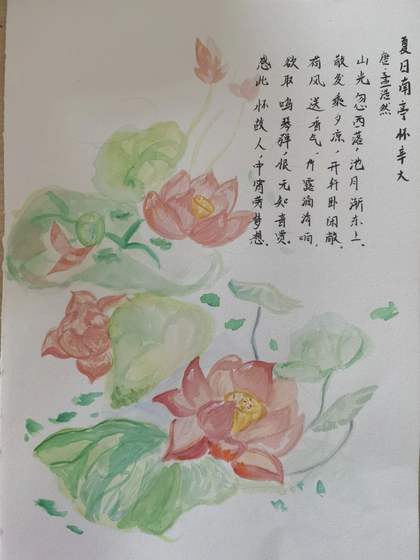 夏日南亭怀辛大
唐·孟浩然
山光忽西落，池月渐东上.
散发乘夕凉，开轩卧闲敞.
荷风送香气，竹露滴清响.
欲取鸣琴弹，恨无知音赏.
感此怀故人，中宵劳梦想.